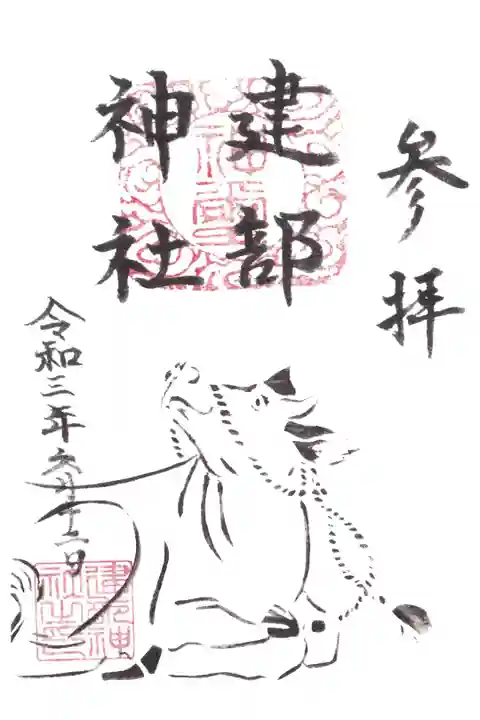 参拝
建部
神社
令和三年六月十二日
建部神
社之印